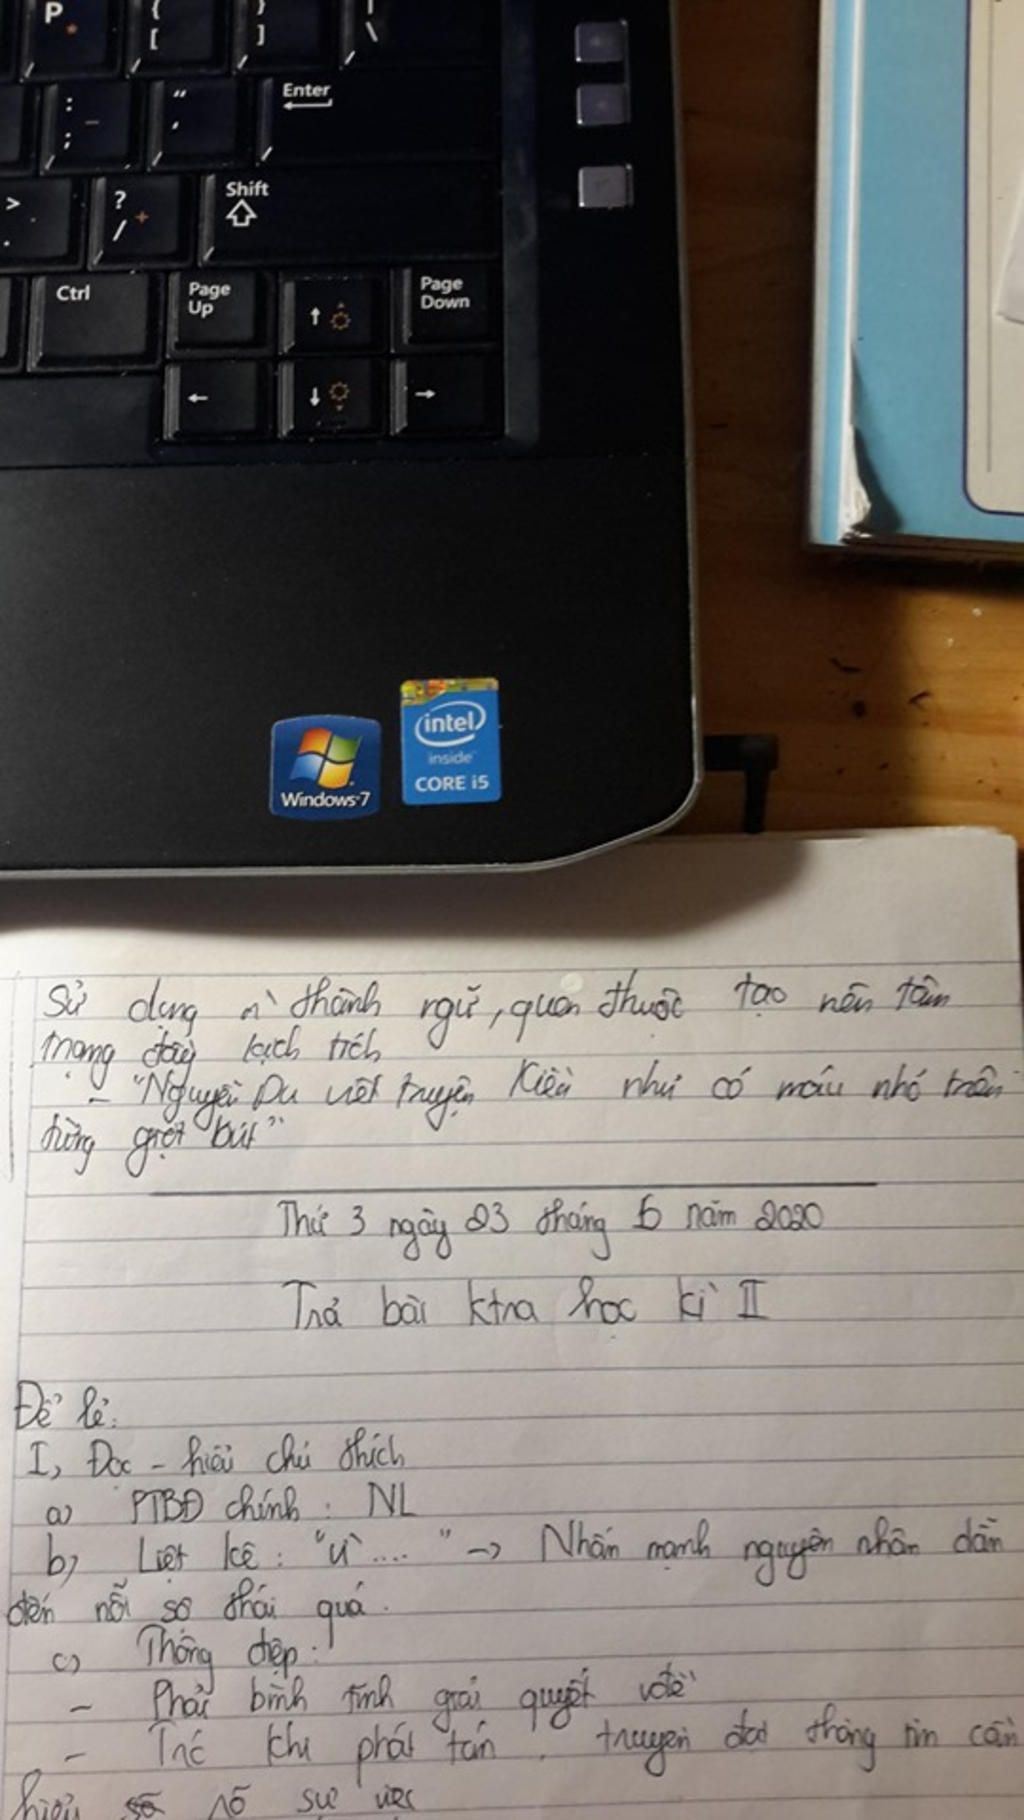 P
*
{
[
}
]
|
\
:
;
-
"
'
Enter
>
.
?
/
+
Shift
Ctrl
Page
Up
Page
Down
Windows 7
intel
inside
CORE i5
Sử dụng thành ngữ, quen thuộc tạo nên tâm
trạng đầy kịch tích
- "Nguyễn Du viết truyện Kiều như có máu nhỏ trên
từng giọt bút"
Thứ 3 ngày 23 tháng 6 năm 2020
Trả bài ktra học kì II
Đề lẻ:
I, Đọc - hiểu chú thích
a) PTBĐ chính: NL
b) Liệt kê: "Vì...." -> Nhấn mạnh nguyên nhân dẫn
đến nỗi sợ thái quá.
c) Thông điệp:
- Phải bình tĩnh giải quyết vđề
- Trc khi phát tán, truyền đạt thông tin cần
hiểu rõ sự việc